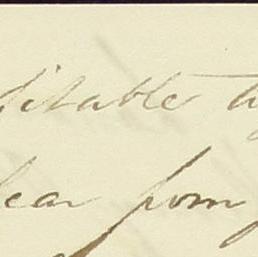 ditable to
hear from